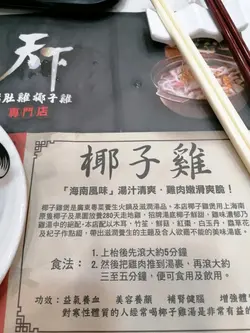 天下
肚雞椰子雞
專門店
椰子雞
『海南風味』湯汁清爽，雞肉嫩滑爽脆！
椰子雞煲是廣東粵菜養生火鍋及滋潤湯品。本店椰子雞煲用上海南
原隻椰子及果園放養280天走地雞，招牌湯底椰子鮮甜，雞味濃郁乃
雞湯中的絕配。本店配以木耳、竹笙、鮮菇、紅棗、白玉丹、蟲草花
及杞子作點綴，帶出滋潤養生的主題及令人欲罷不能的美味湯感。
食法：
1. 上枱後先滾大約5分鐘
2. 然後把雞肉推到湯裹，再滾大約
三至五分鐘，便可食用及飲用。
功效：益氣養血　美容養顏　補腎健腦　增強體
對寒性體質的人經常喝椰子雞湯是非常